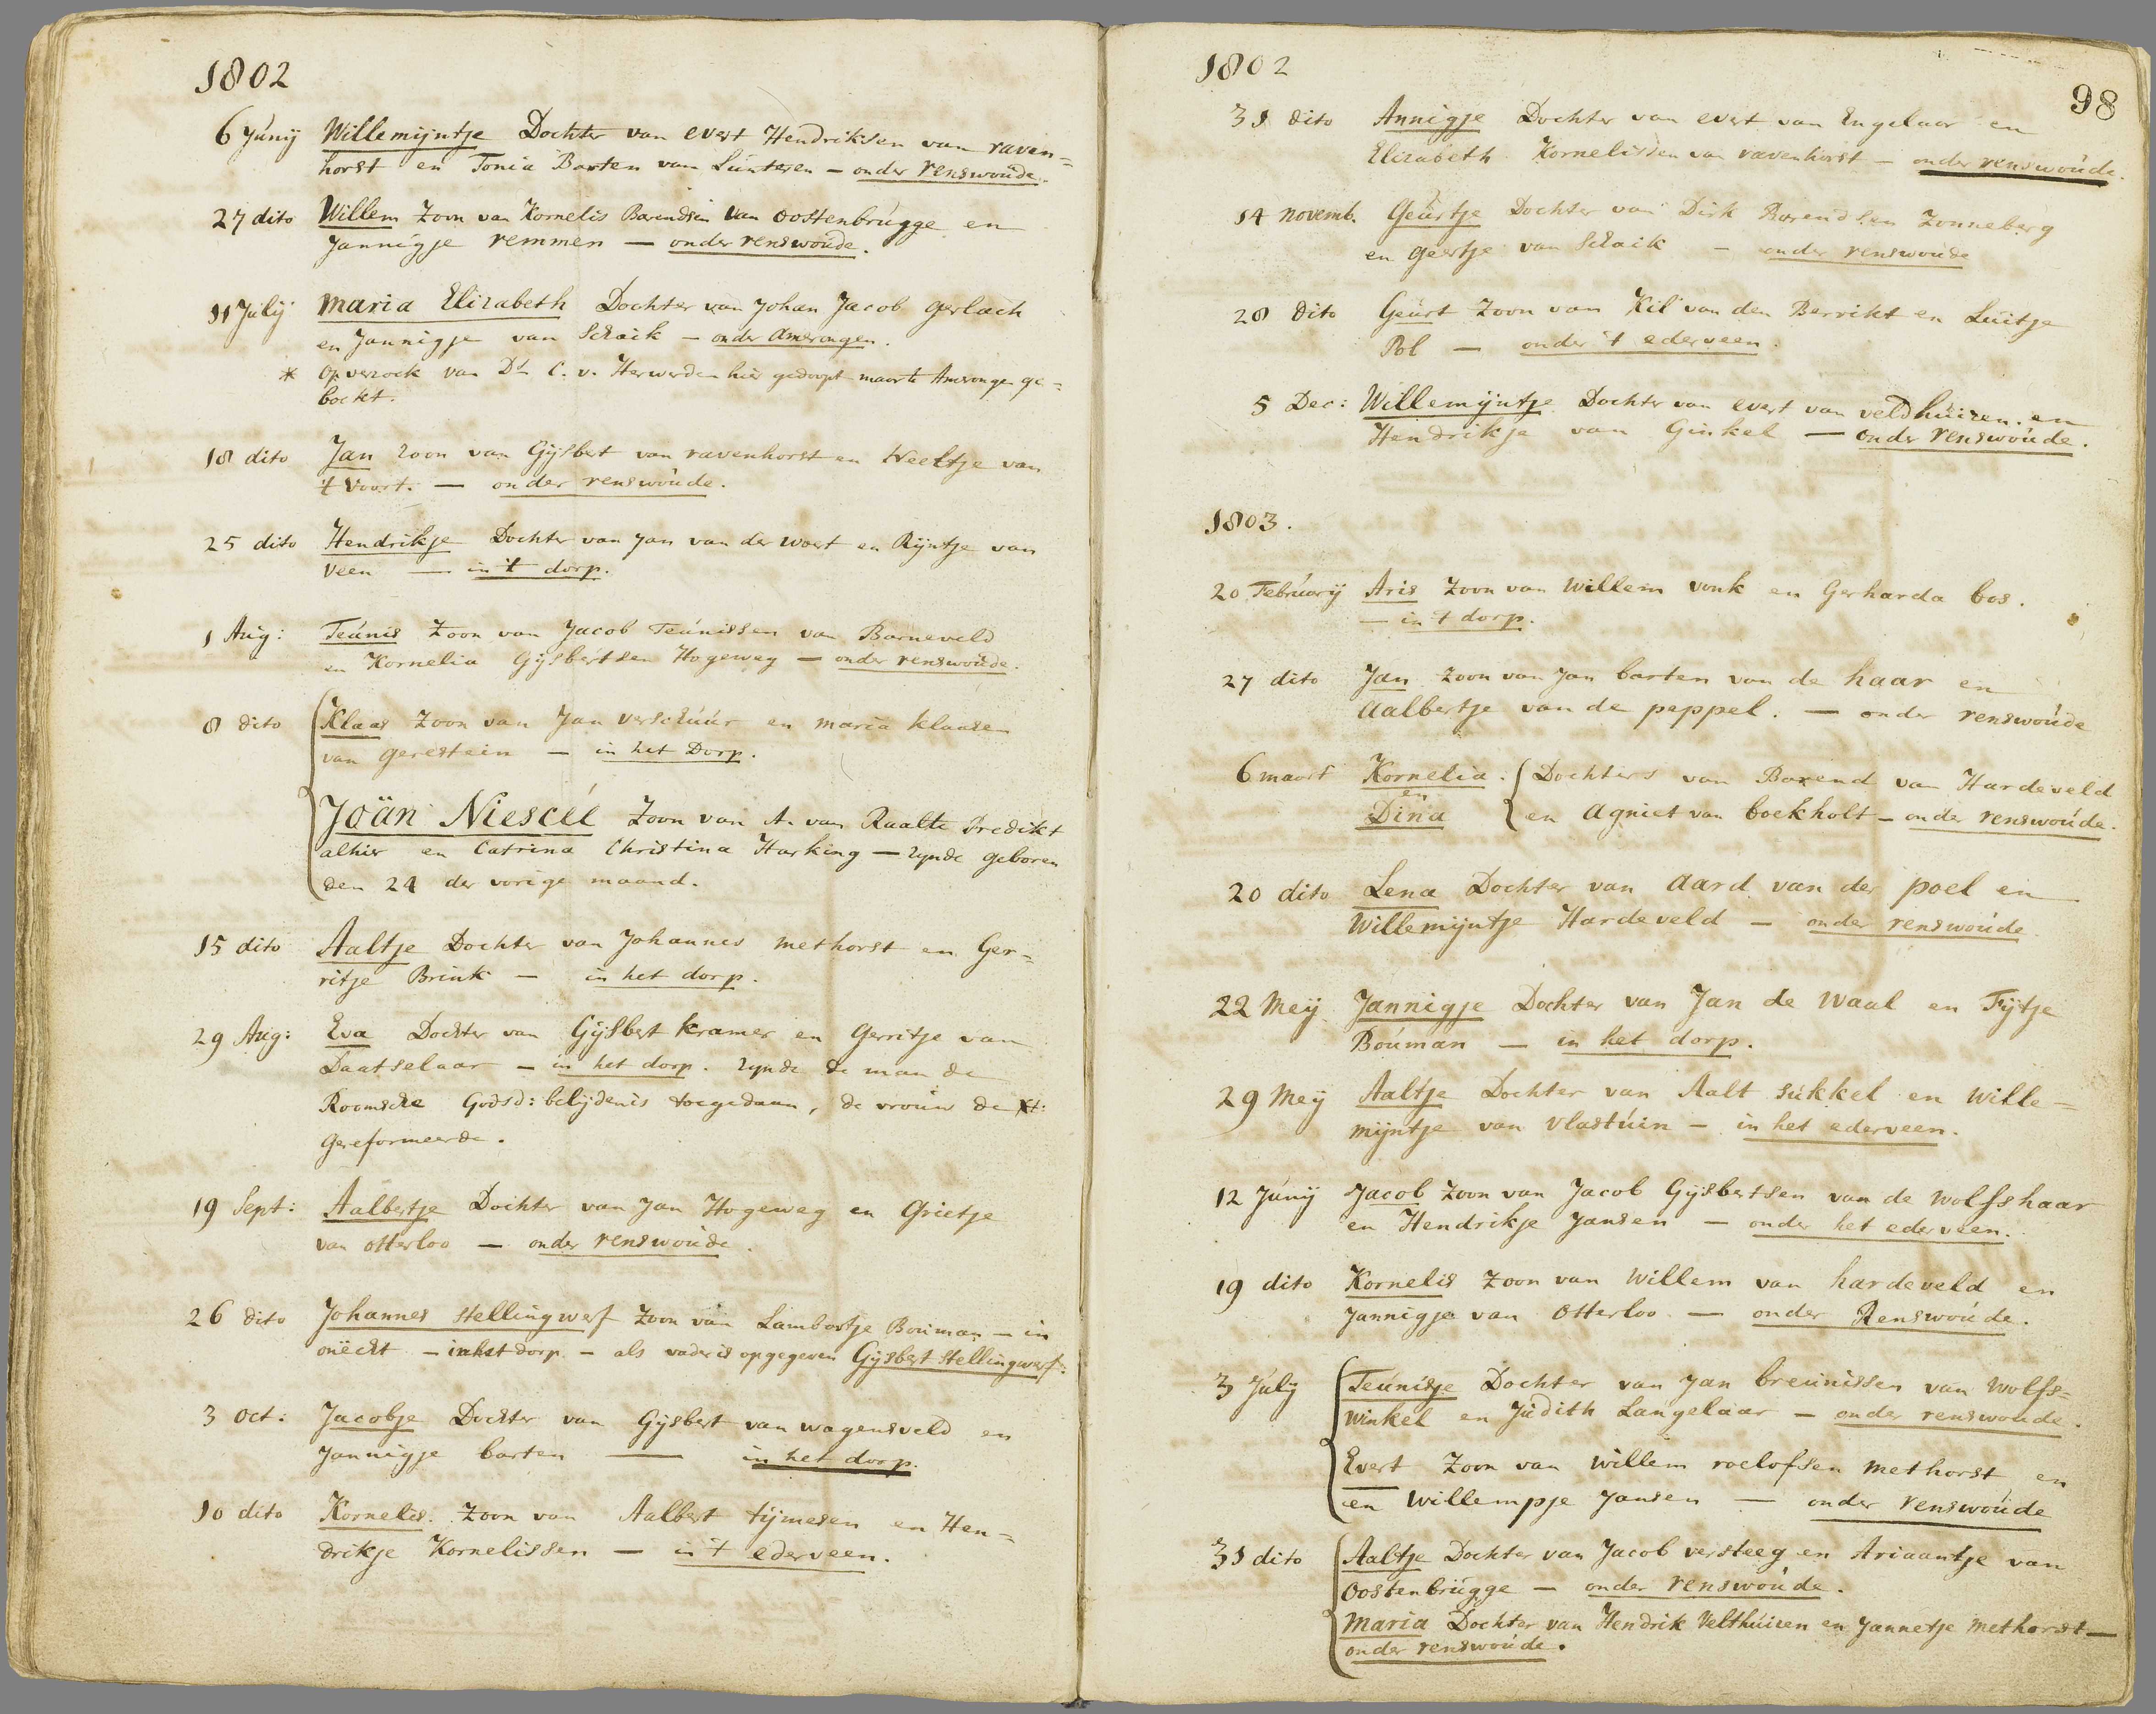 1802
6 Junij Willemijntje Dochter van evert Hendriksen van raven=
horst en Tonia Barten van Lunteren – onder renswoude.
27 dito Willem Zoon van Kornelis Barendsen van oostenbrugge en
Jannigje remmen — onder renswoude.
11 Julij Maria Elizabeth Dochter van Johan Jacob gerlach
en Jannigje van Schaik – onder Amerongen.
* Op verzoek van Ds C. v. Herwerden hier gedoopt maar te Amerongen ge=
boekt.
18 dito Jan zoon van Gijsbert van ravenhorst en Neeltje van
't Voort. — onder renswoude.
25 dito Hendrikje Dochter van Jan van der woert en Rijntje van
Veen — in 't dorp.
1 Aug: Teunis Zoon van Jacob Teunissen van Barneveld
en Kornelia Gijsbertsen Hogeweg — onder renswoude.
8 dito Klaas Zoon van Jan verschuur en maria klaasen
van gerestein — in het Dorp.
Joän Niescéé Zoon van A. van Raalte Predikt
alhier en Catrina Christina Harking — zynde geboren
den 24 der vorige maand.
15 dito Aaltje Dochter van Johannes methorst en Ger=
ritje Brink — in het dorp.
29 Aug: Eva Dochter van Gijsbert kramer en Gerritje van
Daatselaar – in het dorp. zynde de man de
Roomsche Godsd: belijdenis toegedaan, de vrouw de
Gereformeerde.
19 Sept: Aalbertje Dochter van Jan Hogeweg en Grietje
van otterloo — onder renswoude.
26 dito Johannes stellingwerf Zoon van Lambertje Bouman – in
onëcht – in het dorp. – als vader is opgegeven Gijsbert Stellingwerf:
3 oct: Jacobje Dochter van Gijsbert van wagensveld en
Jannigje barten — in het dorp.
10 dito Kornelis. Zoon van Aalbert tijmesen en Hen=
drikje Kornelissen — in 't ederveen.
1802
98
31 dito Annigje Dochter van evert van Engelaar en
Elizabeth Kornelissen van ravenhorst – onder renswoude.
14 novemb. Geurtje Dochter van Dirk Barendsen Zonneberg
en geertje van Schaik – onder renswoude
28 dito Geurt Zoon van Kil van den Berrikt en Luitje
Pol — onder 't ederveen.
5 Dec: Willemijntje Dochter van evert van veldhuizen en
Hendrikje van Ginkel — onder renswoude.
1803.
20 Februarij Aris Zoon van Willem vonk en Gerharda bos.
— in 't dorp.
27 dito Jan Zoon van Jan barten van de haar en
Aalbertje van de peppel. — onder renswoude
6 maart Kornelia. Dochters van Barend van Hardeveld
en
Dina en Agniet van boekholt – onder renswoude.
20 dito Lena Dochter van Aard van der poel en
Willemijntje Hardeveld — onder renswoude.
22 Meij Jannigje Dochter van Jan de Waal en Fijtje
Bouman — in het dorp.
29 Meij Aaltje Dochter van Aalt sukkel en Wille=
mijntje van Vlastuin – in het ederveen.
12 Junij Jacob Zoon van Jacob Gijsbertsen van de wolfshaar
en Hendrikje Jansen — onder het ederveen.
19 dito Kornelis Zoon van Willem van hardeveld en
Jannigje van Otterloo — onder Renswoude.
3 July Teunisje Dochter van Jan breunissen van wolfs=
winkel en Judith Langelaar — onder renswoude.
Evert Zoon van willem roelofsen methorst en
en Willempje Jansen — onder renswoude
31 dito Aaltje Dochter van Jacob versteeg en Ariaantje van
Oostenbrugge — onder renswoude.
Maria Dochter van Hendrik Velthuizen en Jannetje methorst —
onder renswoude.